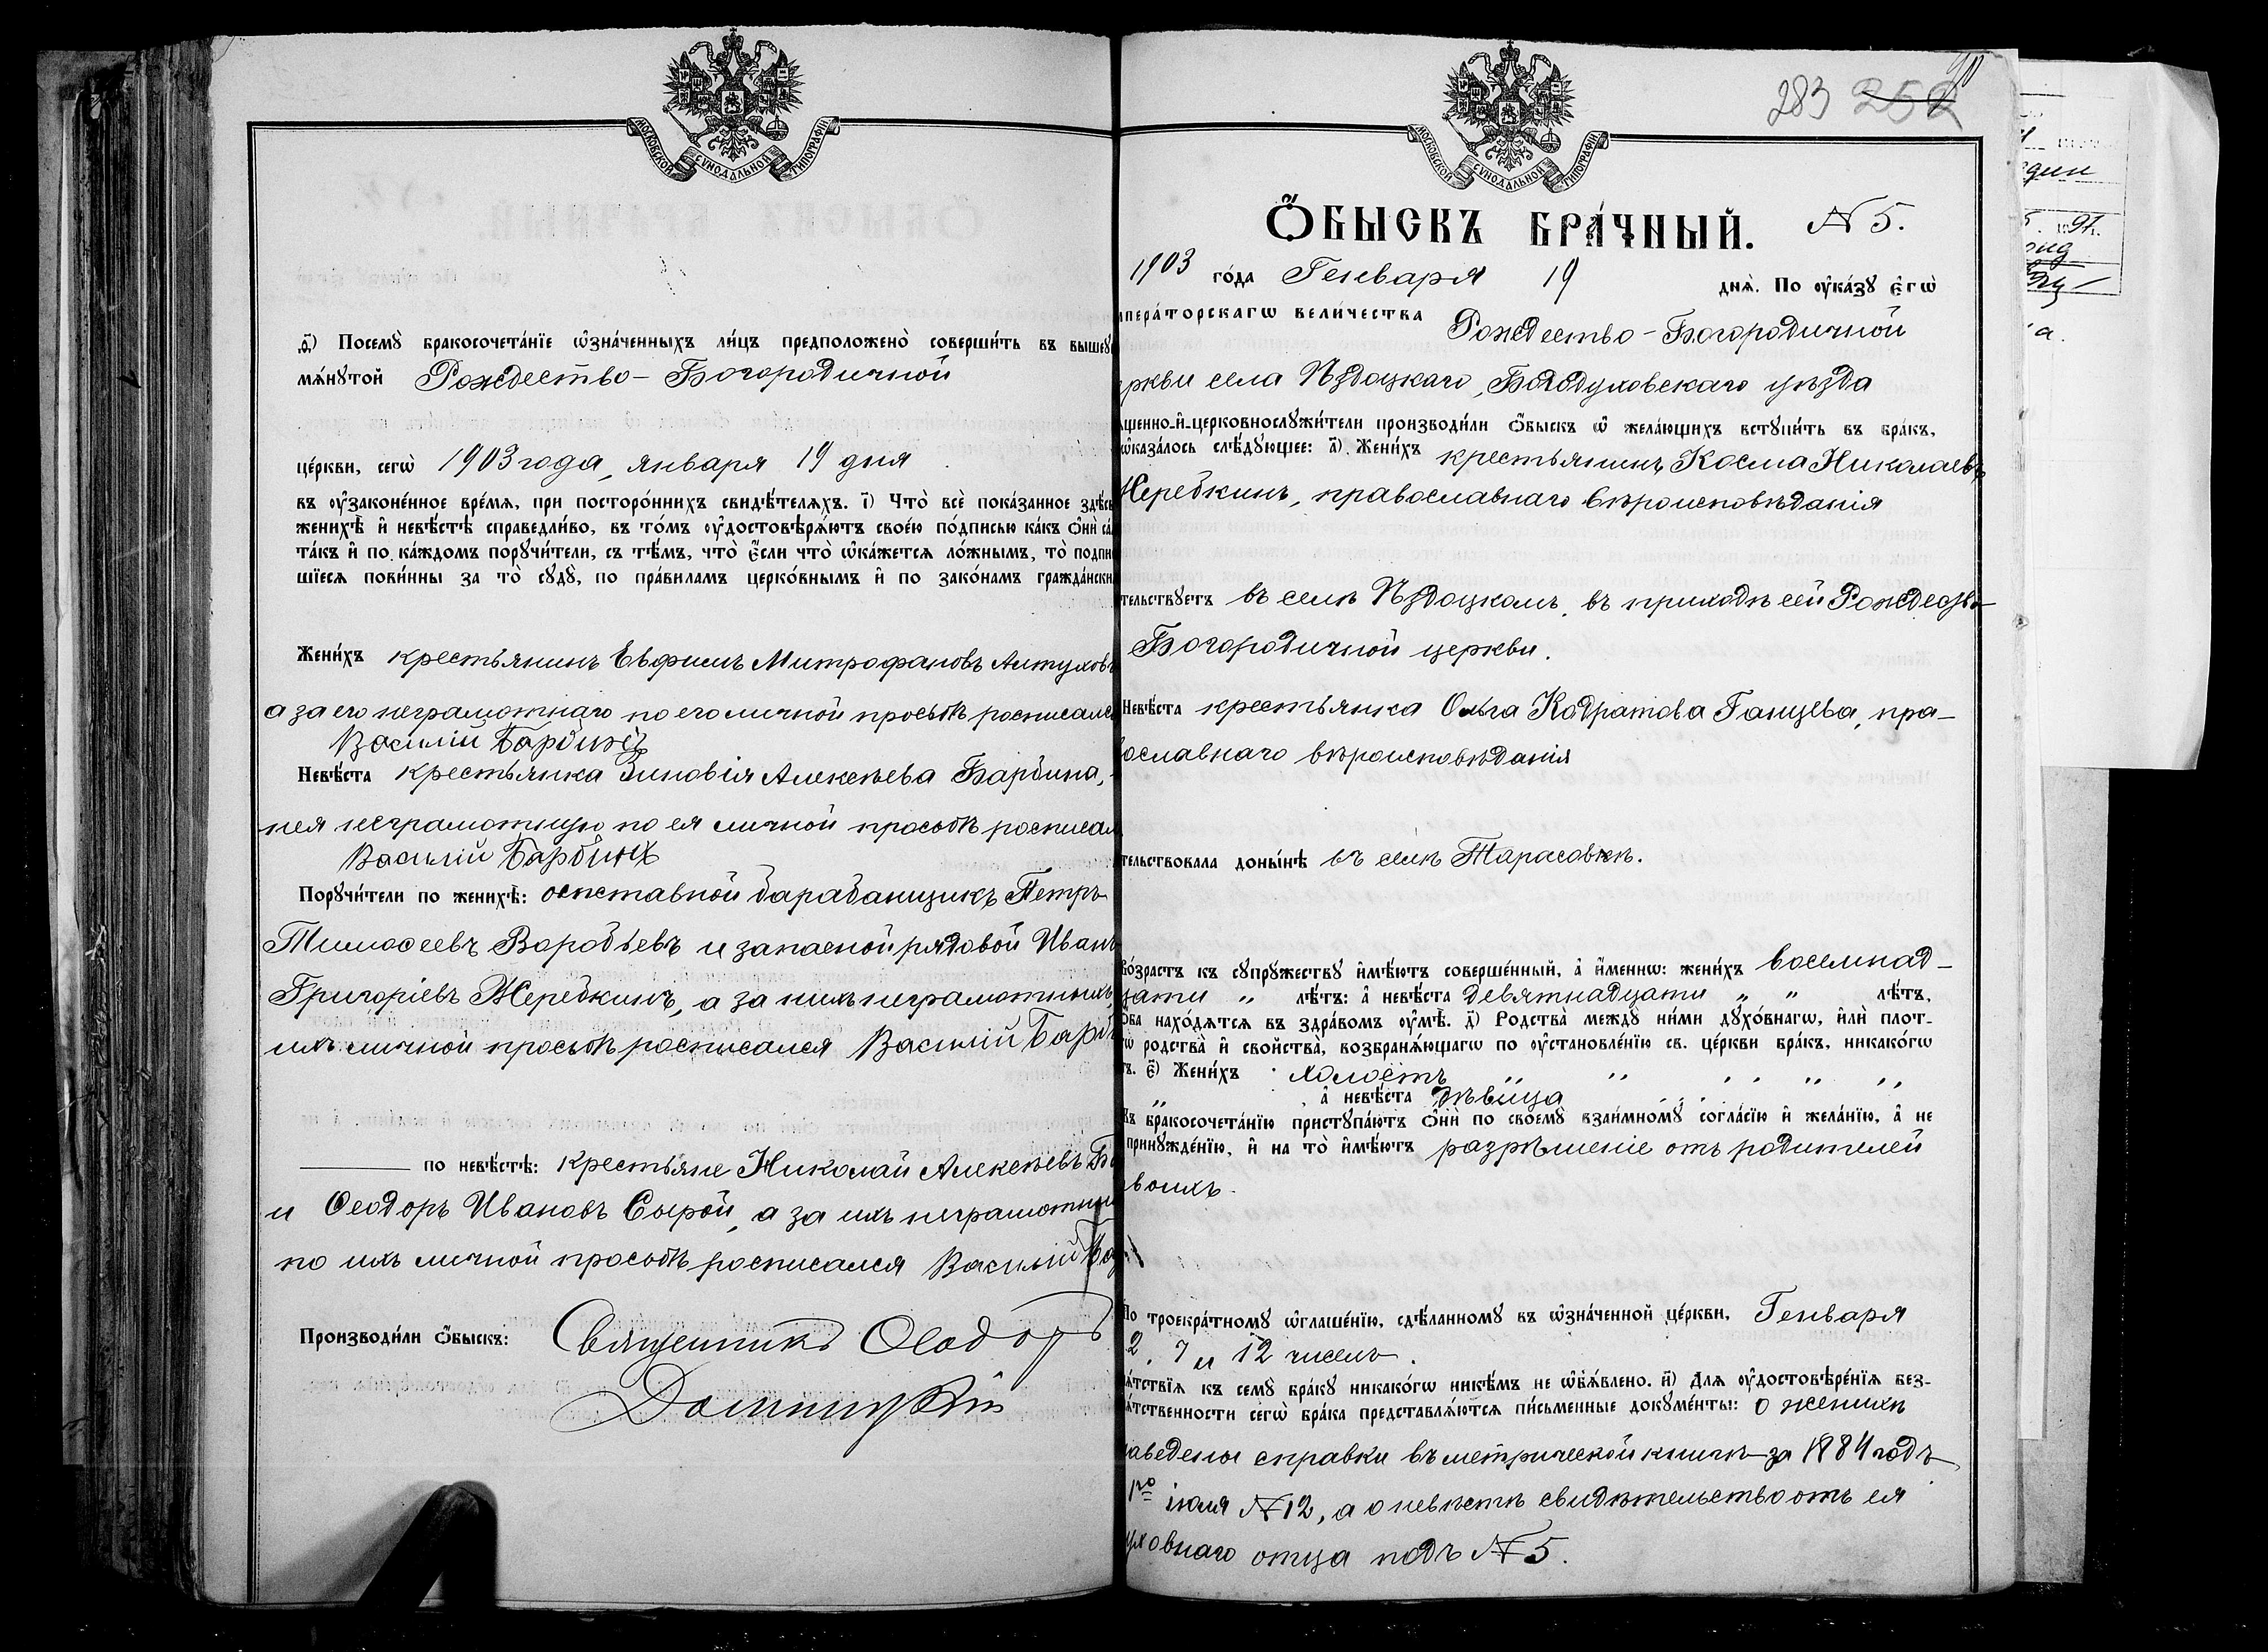 МОСКОВСКОЙ СѴНОДАЛЬНОЙ ТИПОГРАФІИ
ѳ҃) Посемꙋ̀ бракосочета́нїе ѡ҆зна́ченныхъ ли́цъ предположено̀ соверши́ть въ вышеꙋ
мѧ́нꙋтой Рождество-Богородичной
це́ркви, сегѡ̀ 1903 года, января 19 дня
въ ᲂу҆законе́нное вре́мѧ, при посторо́ннихъ свидѣ́телѧхъ. і҃) Что̀ всѐ пока́занное здѣ́сь
женихѣ̀ и҆ невѣ́стѣ справедли́во, въ то́мъ ᲂу҆достовѣрѧ́ютъ свое́ю по́дписью ка́къ ѻ҆нѝ са
та́къ и҆ по ка́ждомъ порꙋчи́тели, съ тѣ́мъ, что̀ є҆́сли что̀ ѡ҆ка́жетсѧ ло́жнымъ, то̀ подпи
шїесѧ пови́нны за то̀ сꙋдꙋ̀, по пра́виламъ церко́внымъ и҆ по зако́намъ гражда́нски
Жени́хъ крестьянинъ Евфимъ Митрофановъ Алтуховъ
а за его неграмотнаго по его личной просьбѣ росписался
Василій Бардинъ
Невѣ́ста крестьянка Зиновія Алексѣева Бардина,
нея неграмотную по ея личной просьбѣ росписал
Василій Бардинъ
Порꙋчи́тели по женихѣ̀: отставной барабанщикъ Петръ
Тимоѳеевъ Воробьевъ и запасной рядовой Иванъ
Григоріевъ Жеребкинъ, а за нихъ неграмотныхъ,
ихъ личной просьбѣ росписался Василій Бард
по невѣ́стѣ: крестьяне Николай Алексѣевъ Ба
и Ѳеодоръ Ивановъ Сырой, а за ихъ неграмотны
по ихъ личной просьбѣ росписался Василій Ба
Производи́ли ѻ҆́быскъ: Священникъ Ѳеодоръ
283 252
МОСКОВСКОЙ СѴНОДАЛЬНОЙ ТИПОГРАФІИ
Ѻ҆́БЫСКЪ БРА́ЧНЫЙ. N 5.
1903 го́да Генваря 19 днѧ̀. По ᲂу҆ка́зꙋ є҆гѡ̀
мпера́торскагѡ вели́чества Рождество-Богородичной
ркви села Пздоцкаго, Богодуховскаго уѣзда
щенно-и҆-церковнослꙋжи́тели производи́ли ѻ҆́быскъ ѡ҆ жела́ющихъ встꙋпи́ть въ бра́къ,
ѡ҆каза́лось слѣ́дꙋющее: а҃). Жени́хъ крестьянинъ Косма Николаевъ
Жеребкинъ, православнаго вѣроисповѣданія
тельствꙋетъ въ селѣ Пздоцкомъ, въ приходѣ сей Рождество-
Богородичной церкви.
Невѣ́ста крестьянка Ольга Кадратова Ганцева, пра-
ославнаго вѣроисповѣданія
тельствовала доны́нѣ въ селѣ Тарасовкѣ.
во́зрастъ къ сꙋпрꙋ́жествꙋ и҆мѣ́ютъ соверше́нный, а҆ и҆́меннѡ: жени́хъ восемнад-
цати „ лѣ́тъ: а҆ невѣ́ста девятнадцати „ „ лѣ́тъ,
ѻ҆́ба нахо́дѧтсѧ въ здра́вомъ ᲂу҆мѣ̀. д҃) Родства̀ междꙋ̀ ни́ми дꙋхо́внагѡ, и҆лѝ плот-
гѡ родства̀ и҆ свойства̀, возбранѧ́ющагѡ по ᲂу҆становле́нїю св. це́ркви бра́къ, никако́гѡ
тъ. є҃) Жени́хъ холостъ „ „ „ „ „
„ а҆ невѣ́ста дѣвица
Къ бракосочета́нїю пристꙋпа́ютъ ѻ҆нѝ по своемꙋ̀ взаи́мномꙋ согла́сїю и҆ жела́нїю, а҆ не
принꙋжде́нїю, и҆ на то̀ и҆мѣ́ютъ разрѣшеніе отъ родителей
воихъ.
По троекра́тномꙋ ѡ҆глаше́нїю, сдѣ́ланномꙋ въ ѡ҆зна́ченной це́ркви, Генваря
2, 7 и 12 чиселъ.
ѧ́тствїѧ къ семꙋ̀ бра́кꙋ никако́гѡ никѣ́мъ не ѡ҆б̾ѧ́влено. и҃) Длѧ ᲂу҆достовѣре́нїѧ без-
ѧ́тственности сегѡ̀ бра́ка представлѧ́ютсѧ пи́сьменные докꙋме́нты: о женихѣ
наведены справки въ метрической книгѣ за 1884 годъ
1го іюля N 12, а о невѣстѣ свидѣтельство отъ ея
уховнаго отца подъ N 5.